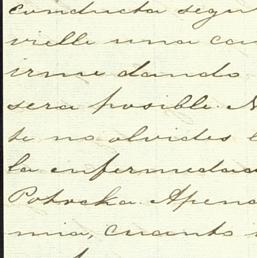 conducta segu
vielle una car
irme dando
sera posible. N
te no olvides
la enfermedad
Potocka. Apena
mia, cuanto